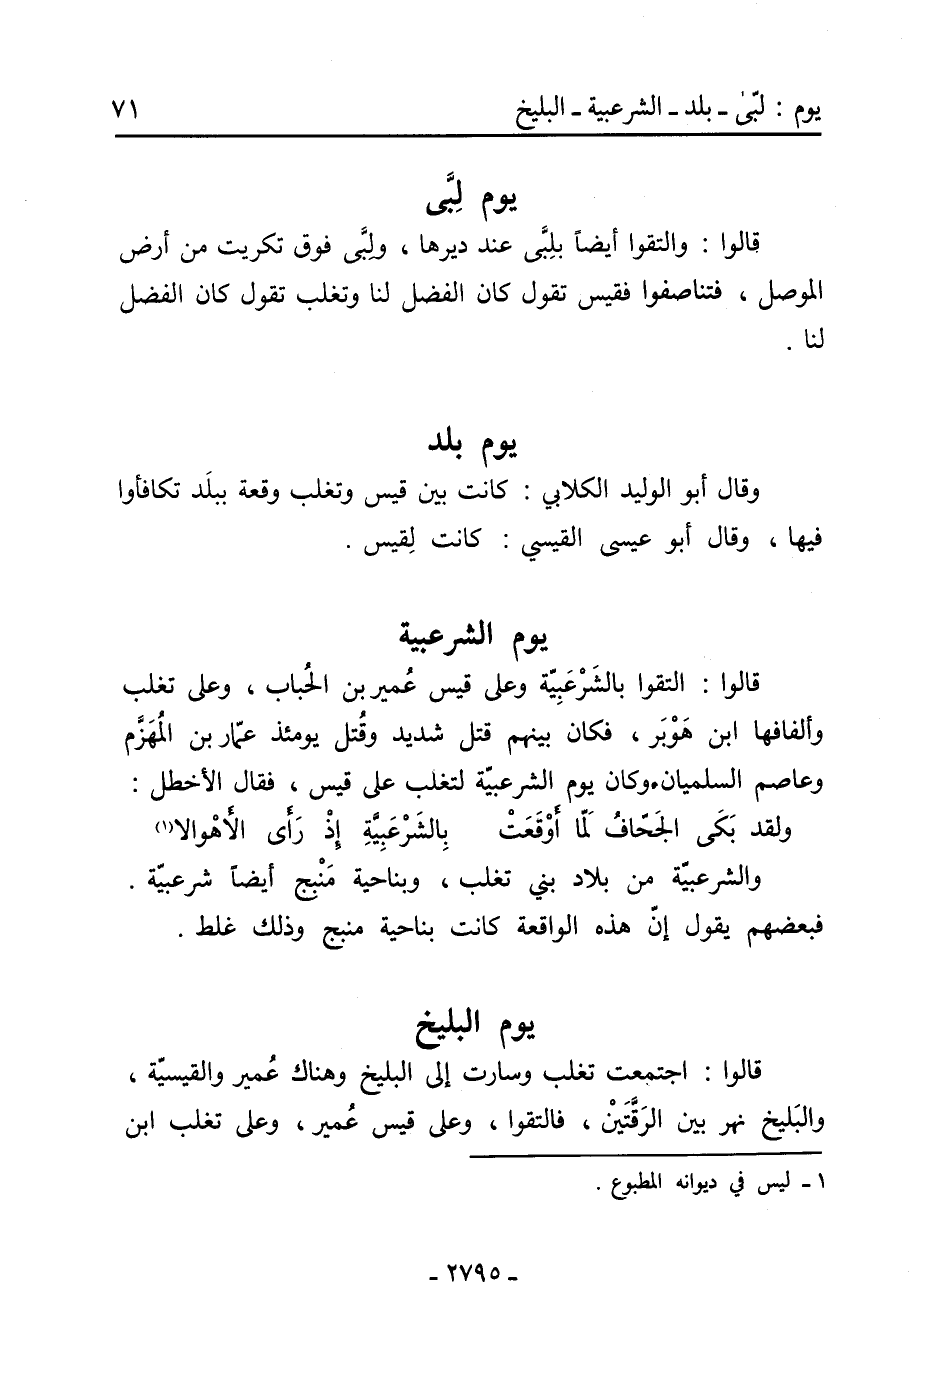 يوم : لبّىٰ ـ بلد ـ الشرعبية ـ البليخ ٧١
يوم لِبَّى
قالوا : والتقوا أيضاً بلِبَّى عند ديرها ، ولِبَّى فوق تكريت من أرض
الموصل ، فتناصفوا فقيس تقول كان الفضل لنا وتغلب تقول كان الفضل
لنا .
يوم بلد
وقال أبو الوليد الكلابي : كانت بين قيس وتغلب وقعة ببلَد تكافأوا
فيها ، وقال أبو عيسى القيسي : كانت لِقيس .
يوم الشرعبية
قالوا : التقوا بالشَرْعَبِيّة وعلى قيس عُمير بن الحُباب ، وعلى تغلب
وألفافها ابن هَوْبَر ، فكان بينهم قتل شديد وقُتل يومئذ عمّار بن المُهَزَّم
وعاصم السلميان،وكان يوم الشرعبيّة لتغلب على قيس ، فقال الأخطل :
ولقد بَكَى الجَحّافُ لَمّا أَوْقَعَتْ بِالشَرْعَبِيَّةِ إِذْ رَأَى الأَهْوالا(١)
والشرعبيّة من بلاد بني تغلب ، وبناحية مَنْبِج أيضاً شرعبيّة .
فبعضهم يقول إنّ هذه الواقعة كانت بناحية منبج وذلك غلط .
يوم البليخ
قالوا : اجتمعت تغلب وسارت إلى البليخ وهناك عُمير والقيسيّة ،
والبَليخ نهر بين الرَقَّتَيْن ، فالتقوا ، وعلى قيس عُمير ، وعلى تغلب ابن
١ ـ ليس في ديوانه المطبوع .
ـ ٢٧٩٥ ـ